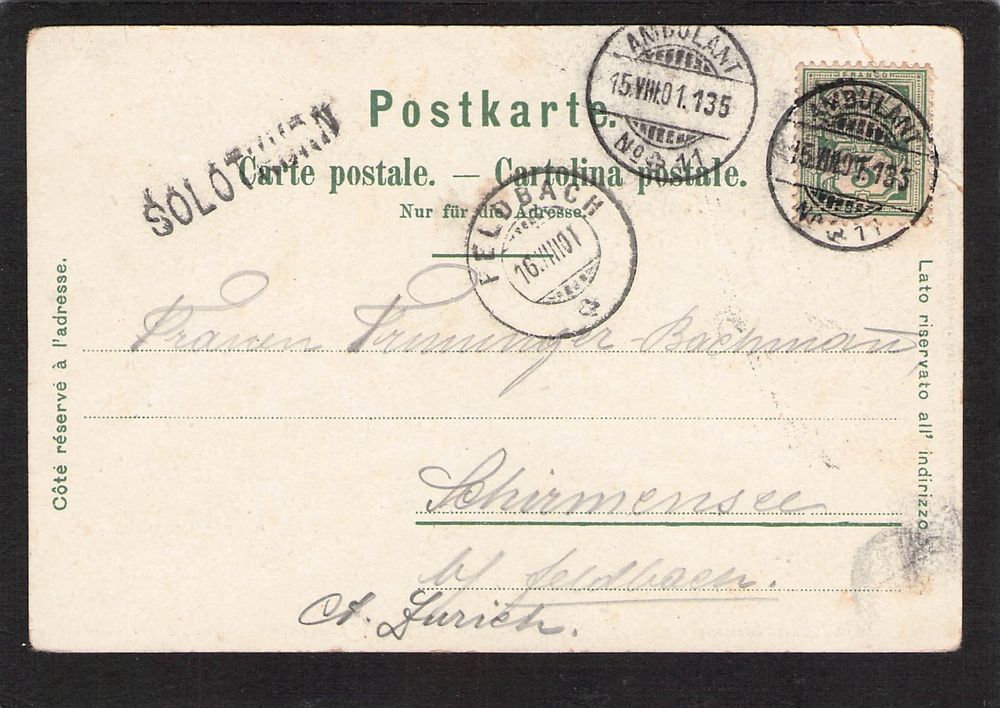 Postkarte.
Carte postale. — Cartolina postale.
Nur für die Adresse.
SOLOTHURN
AMBULANT
15.VIII.01.135
No 11
FRANCO
AMBULANT
15.VIII.01.135
No 11
5
FELDBACH
16.VIII.01
Côté réservé à l'adresse.
Lato riservato all' indirizzo
Frauen Bachmann
Schirmensee
b/ Feldbach.
Ct. Zürich.